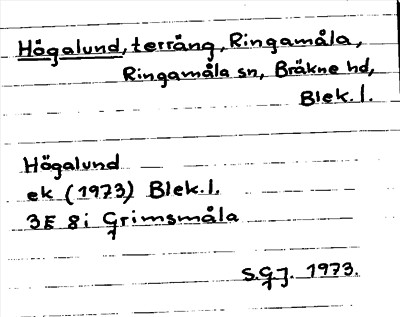 Högalund, terräng, Ringamåla,
Ringamåla sn, Bräkne hd,
Blek. l.
Högalund
ek (1973) Blek. l.
3E 8i Grimsmåla
S.G.J. 1973.